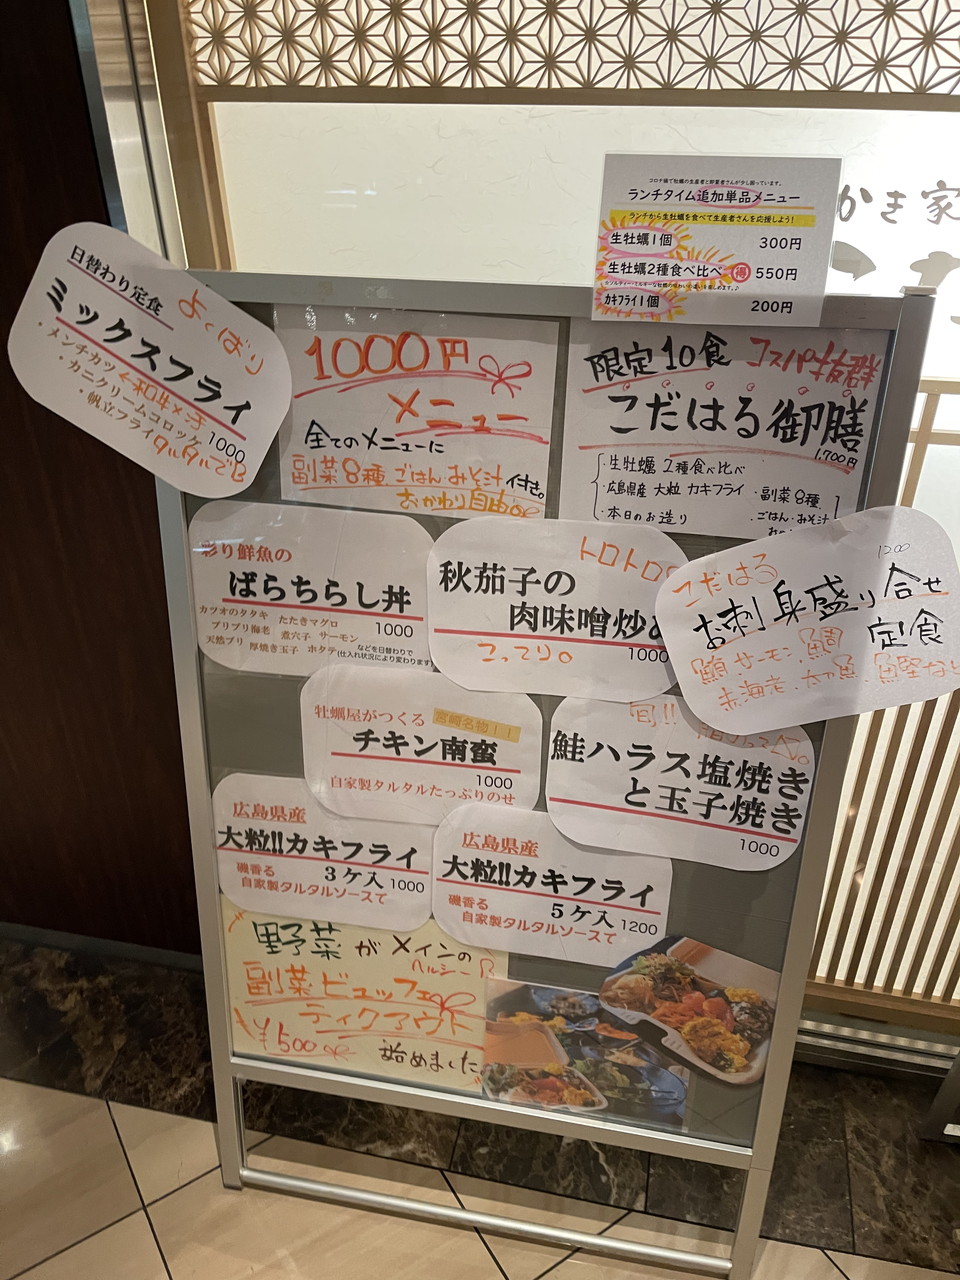 コロナ禍で牡蠣の生産者と卸業者さんが少し困っています。
ランチタイム追加単品メニュー
ランチから生牡蠣を食べて生産者さんを応援しよう!
生牡蠣1個 300円
生牡蠣2種食べ比べ 得 550円
カキフライ1個 200円
かき家
こ
日替わり定食
よくばり
ミックスフライ
・メンチカツ<和牛×汗
・カニクリームコロッケ
・帆立フライ
1000
タルタルで
1000円
メニュー
全てのメニューに
副菜8種 ごはん・みそ汁 付き。
おかわり自由
限定10食 コスパ抜群
こだはる御膳
1,700円
・生牡蠣 2種食べ比べ
・広島県産 大粒 カキフライ
・本日のお造り
・副菜8種
・ごはん・みそ汁
彩り鮮魚の
ばらちらし丼
1000
カツオのタタキ たたきマグロ
プリプリ海老 煮穴子 サーモン
天然ブリ 厚焼き玉子 ホタテ
などを日替わりで
(仕入れ状況により変わります)
トロトロ
秋茄子の
肉味噌炒め
1000
こってり。
1200
こだはる
お刺身盛り合せ
定食
鮪 サーモン 鯛
赤海老、太刀魚、
牡蠣屋がつくる
宮崎名物!!
チキン南蛮
1000
自家製タルタルたっぷりのせ
旬!!
鮭ハラス塩焼き
と玉子焼き
1000
広島県産
大粒!!カキフライ
3ケ入 1000
磯香る
自家製タルタルソースて
広島県産
大粒!!カキフライ
5ケ入 1200
磯香る
自家製タルタルソースて
野菜がメインの
ヘルシー
副菜ビュッフェ
テイクアウト
¥500 始めました